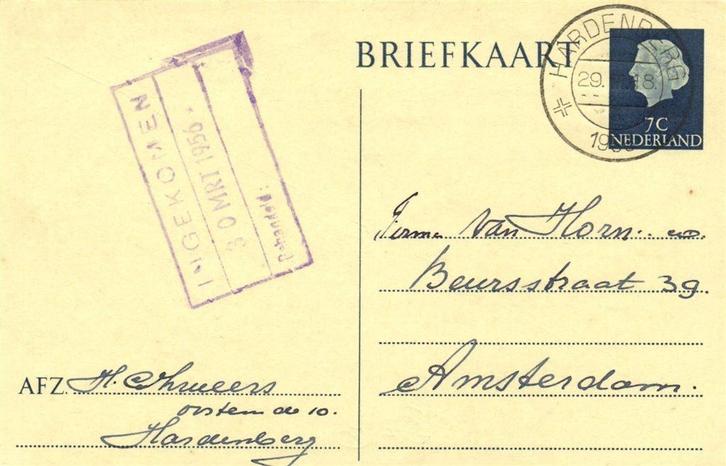 BRIEFKAART
HARDENBERG
29.
18.
19
7C
NEDERLAND
INGEKOMEN
30 MRT 1956
Behandeld:
Firma van Horn en
Beursstraat 39
Amsterdam.
AFZ. H.
10.
Hardenberg